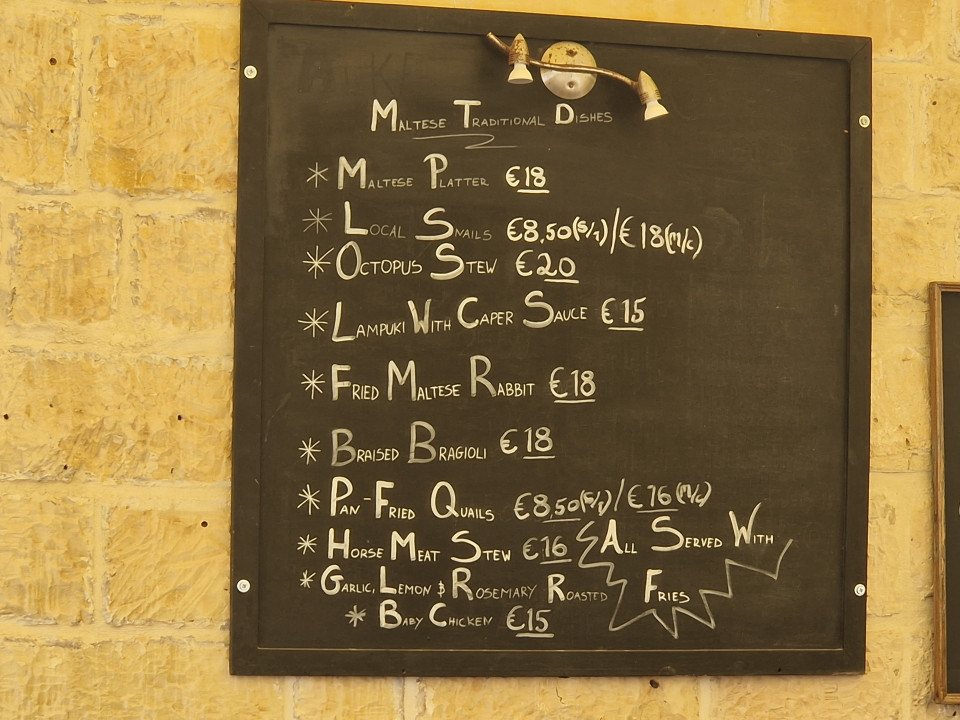 MALTESE TRADITIONAL DISHES
* MALTESE PLATTER €18
* LOCAL SNAILS €8,50(S/1)/€18(M/C)
* OCTOPUS STEW €20
* LAMPUKI WITH CAPER SAUCE €15
* FRIED MALTESE RABBIT €18
* BRAISED BRAGIOLI €18
* PAN-FRIED QUAILS €8,50(S/1)/€16(M/C)
* HORSE MEAT STEW €16
* GARLIC, LEMON & ROSEMARY ROASTED
* BABY CHICKEN €15
ALL SERVED WITH
FRIES